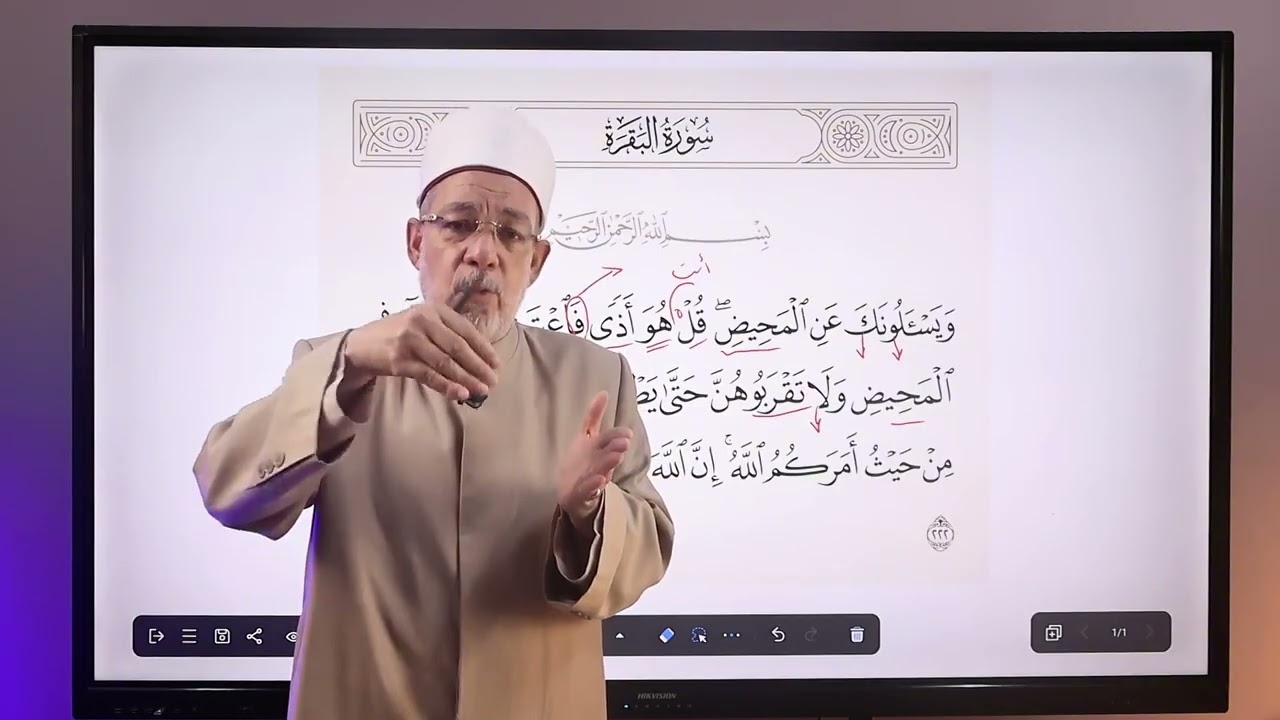 سُورَةُ البَقَرَةِ
بِسْمِ ٱللَّهِ ٱلرَّحْمَٰنِ ٱلرَّحِيمِ
أنت
وَيَسْـَٔلُونَكَ عَنِ ٱلْمَحِيضِ ۖ قُلْ هُوَ أَذًى
ٱلْمَحِيضِ وَلَا تَقْرَبُوهُنَّ حَتَّىٰ
مِنْ حَيْثُ أَمَرَكُمُ ٱللَّهُ ۚ إِنَّ ٱللَّهَ
٢٢٢
1/1
HIKVISION